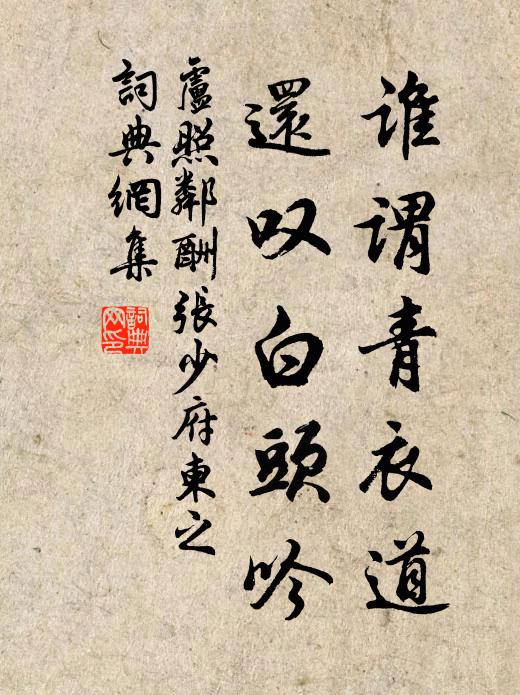 誰謂青衣道
還叹白頭吟
盧照鄰酬張少府東之
詞典網集
詞典网印